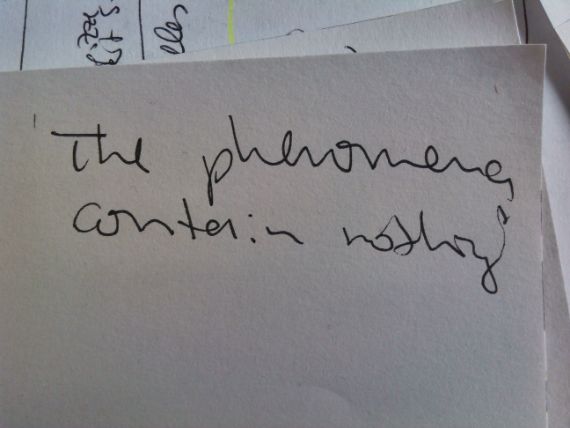 'The phenomena
contain nothing'